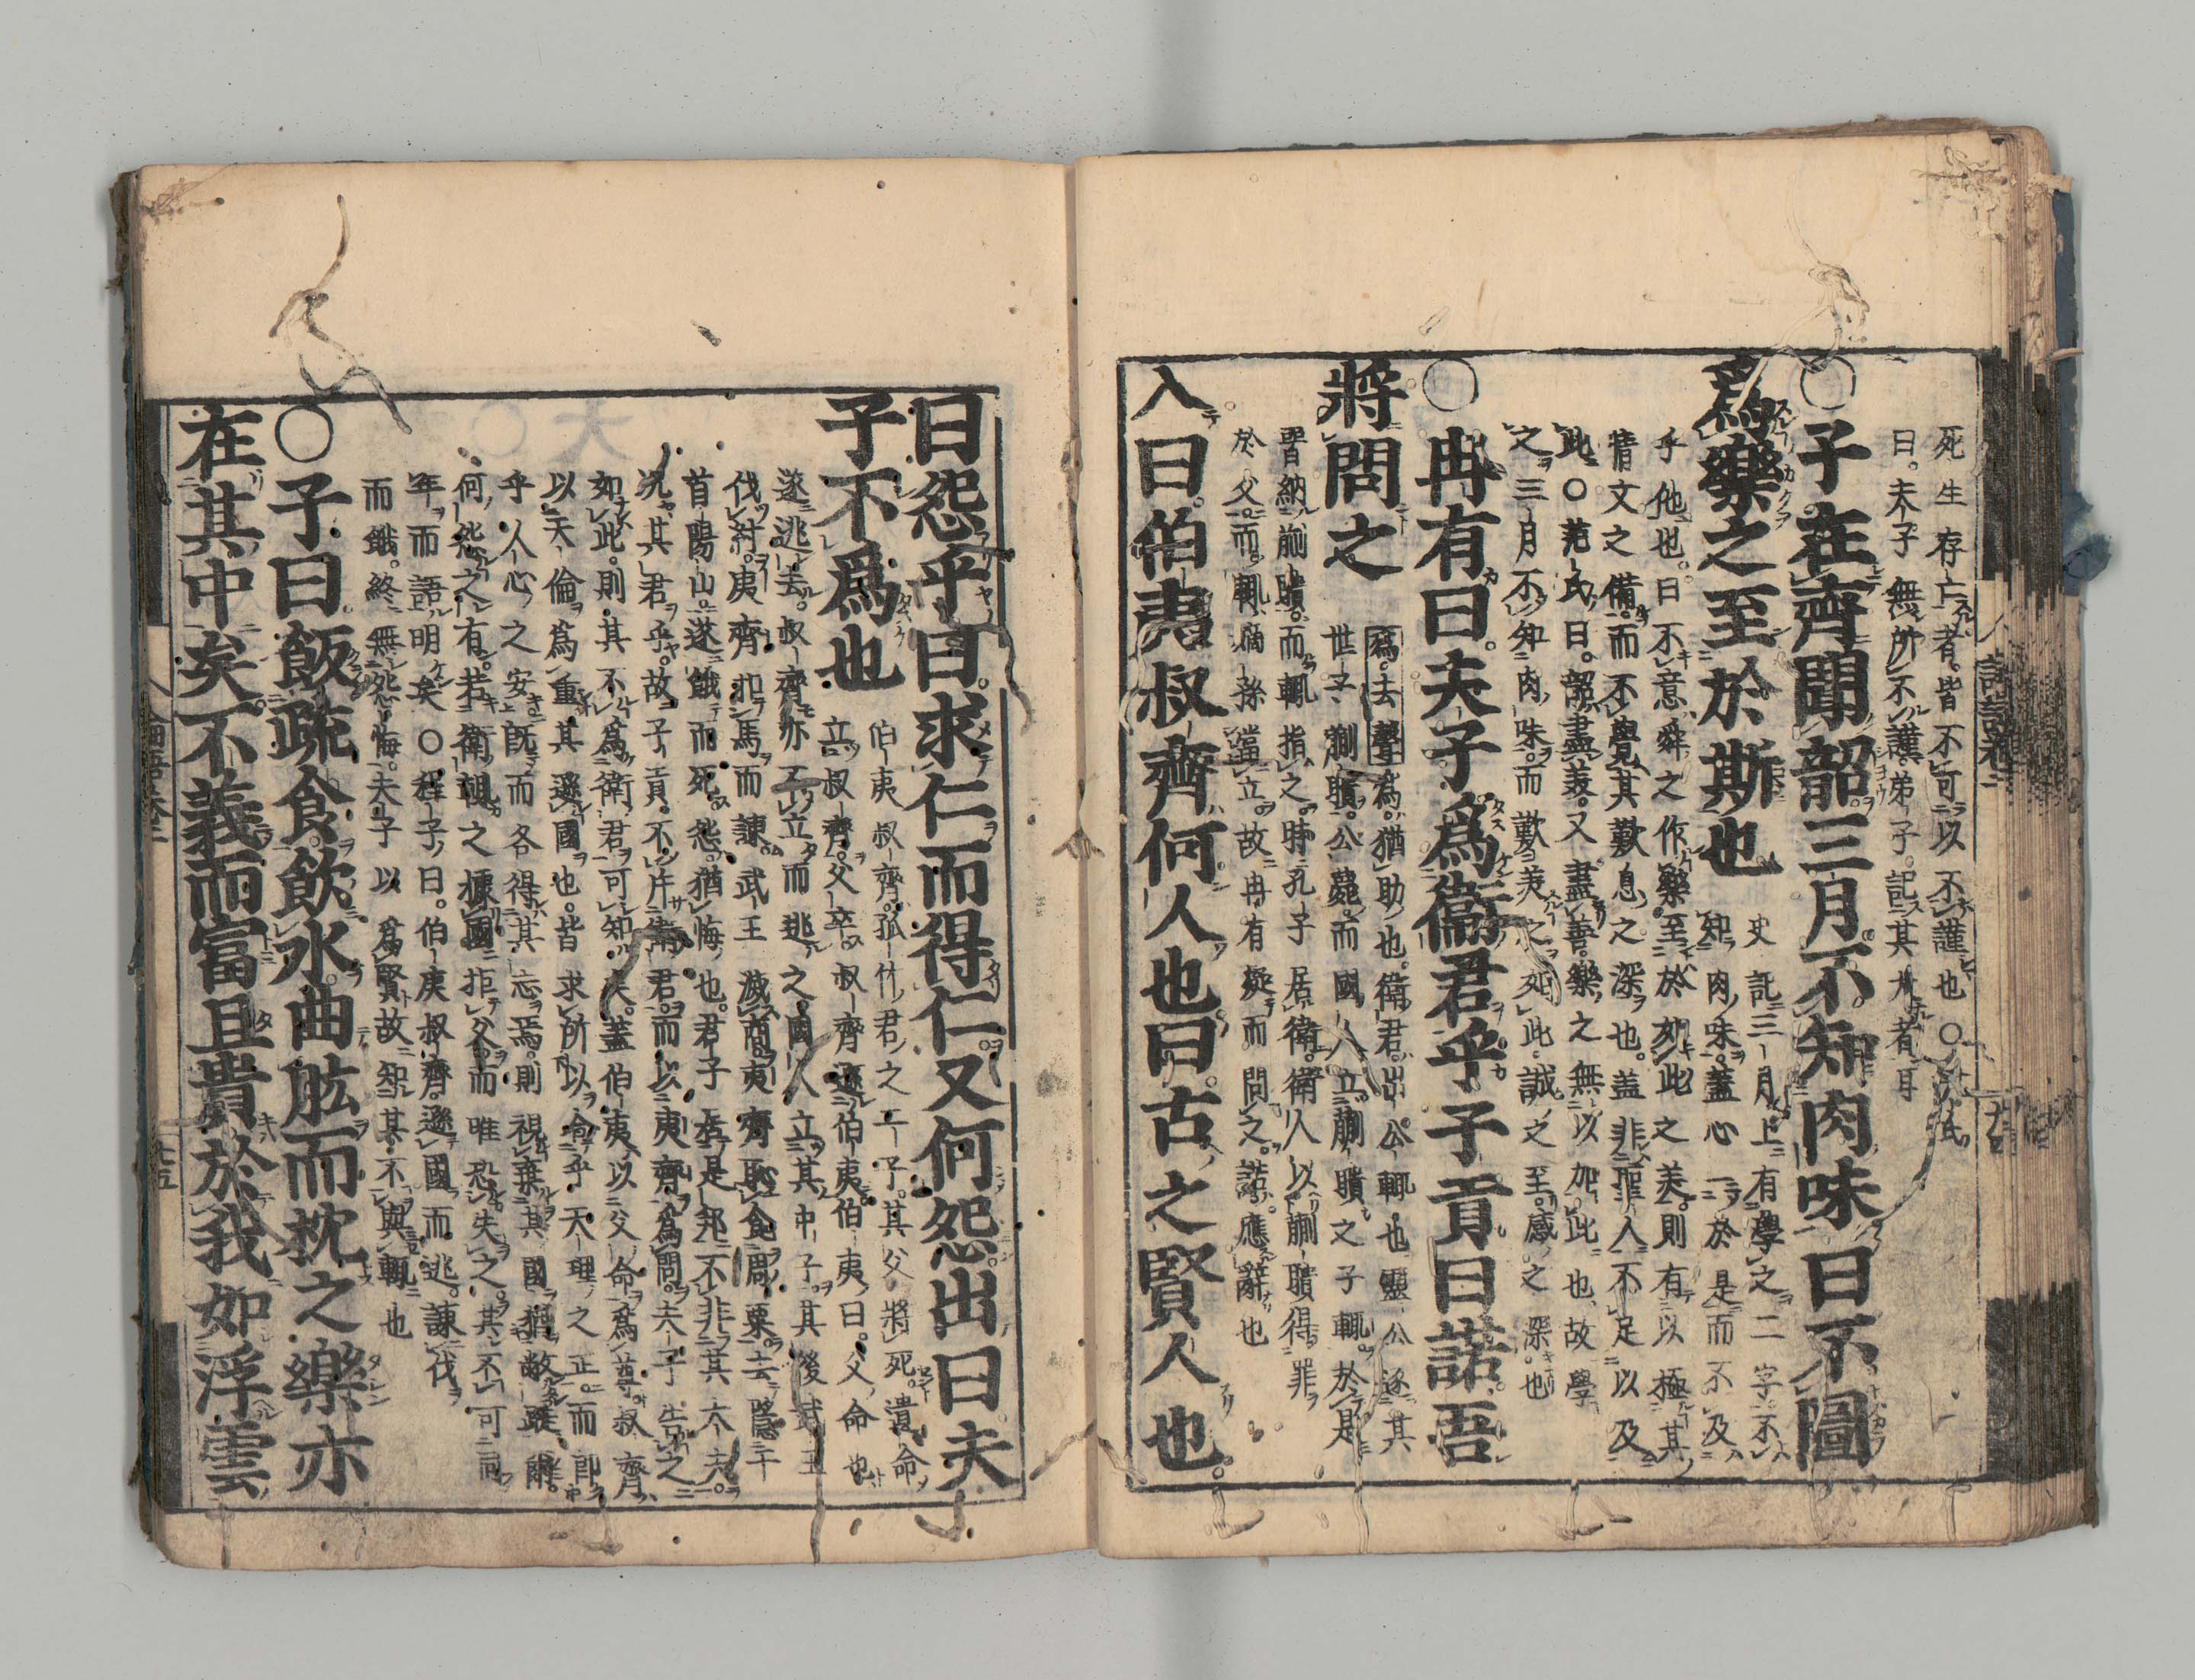 死生存亡者皆不可以不謹也○尹氏
曰夫子無所不謹弟子記其大者耳
○子在齊聞韶三月不知肉味曰不圖
爲樂之至於斯也
史記三月上有學之二字不
知肉味蓋心一於是而不及
乎他也曰不意舜之作樂至於如此之美則有以極其
情文之備而不覺其歎息之深也蓋非聖人不足以及
此○范氏曰韶盡美又盡善樂之無以加此也故學
之三月不知肉味而歎美之如此誠之至感之深也
○冉有曰夫子爲衞君乎子貢曰諾吾
將問之
爲去聲爲猶助也衛君出公輒也靈公逐其
世子蒯聵公薨而國人立蒯聵之子輒於是
晋納蒯聵而輒拒之時孔子居衛衛人以蒯聵得罪
於父而輒嫡孫當立故冉有疑而問之諾應辭也
入曰伯夷叔齊何人也曰古之賢人也
曰怨乎曰求仁而得仁又何怨出曰夫
子不爲也
伯夷叔齊孤竹君之二子其父將死遺命
立叔齊父卒叔齊遜伯夷伯夷曰父命也
遂逃去叔齊亦不立而逃之國人立其中子其後武王
伐紂夷齊扣馬而諫武王滅商夷齊恥食周粟去隱于
首陽山遂餓而死怨猶悔也君子居是邦不非其大夫
况其君乎故子貢不斥衛君而以夷齊爲問夫子告之
如此則其不爲衛君可知矣蓋伯夷以父命爲尊叔齊
以天倫爲重其遜國也皆求所以合乎天理之正而即
乎人心之安既而各得其志焉則視棄其國猶敝蹝爾
何怨之有若衛輒之據國拒父而唯恐失之其不可同
年而語明矣○程子曰伯夷叔齊遜國而逃諫伐
而餓終無怨悔夫子以爲賢故知其不與輒也
○子曰飯疏食飲水曲肱而枕之樂亦
在其中矣不義而富且貴於我如浮雲